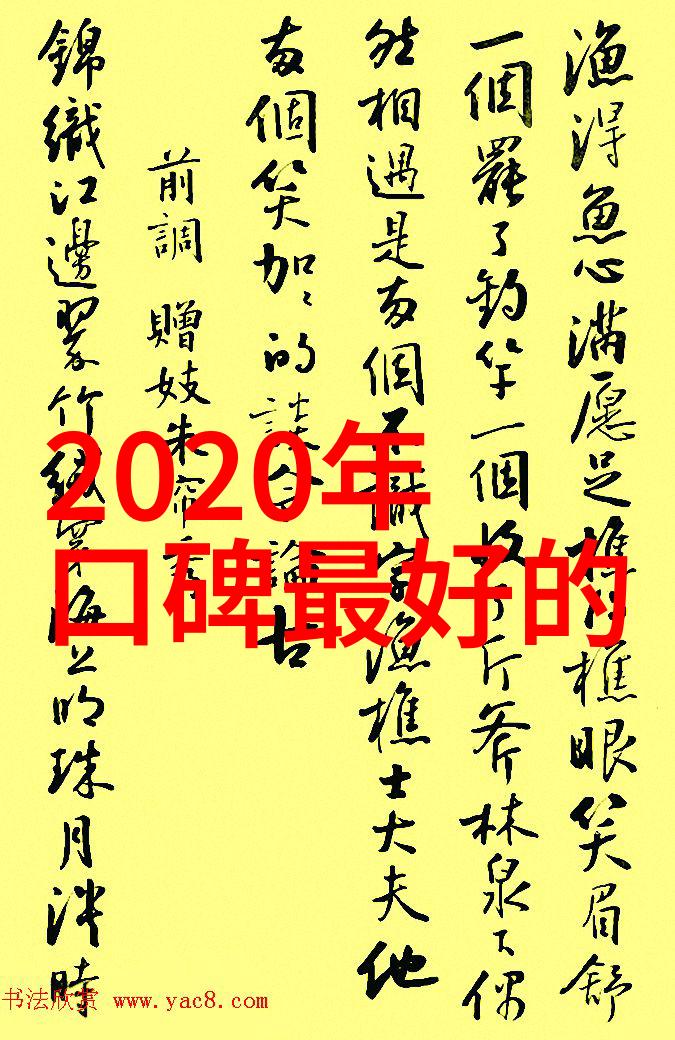 漁得魚心滿愿足樵得樵眼笑眉舒
一個罷了釣竿一個收了斤斧林泉下偶
然相遇是兩個不識字漁樵士大夫他
兩個笑加〻的談今論古
前調 贈妓朱帘秀
錦織江邊翠竹絨穿海上明珠月淡時
2020年
口碑最好的
书法欣赏 www.yac8.com